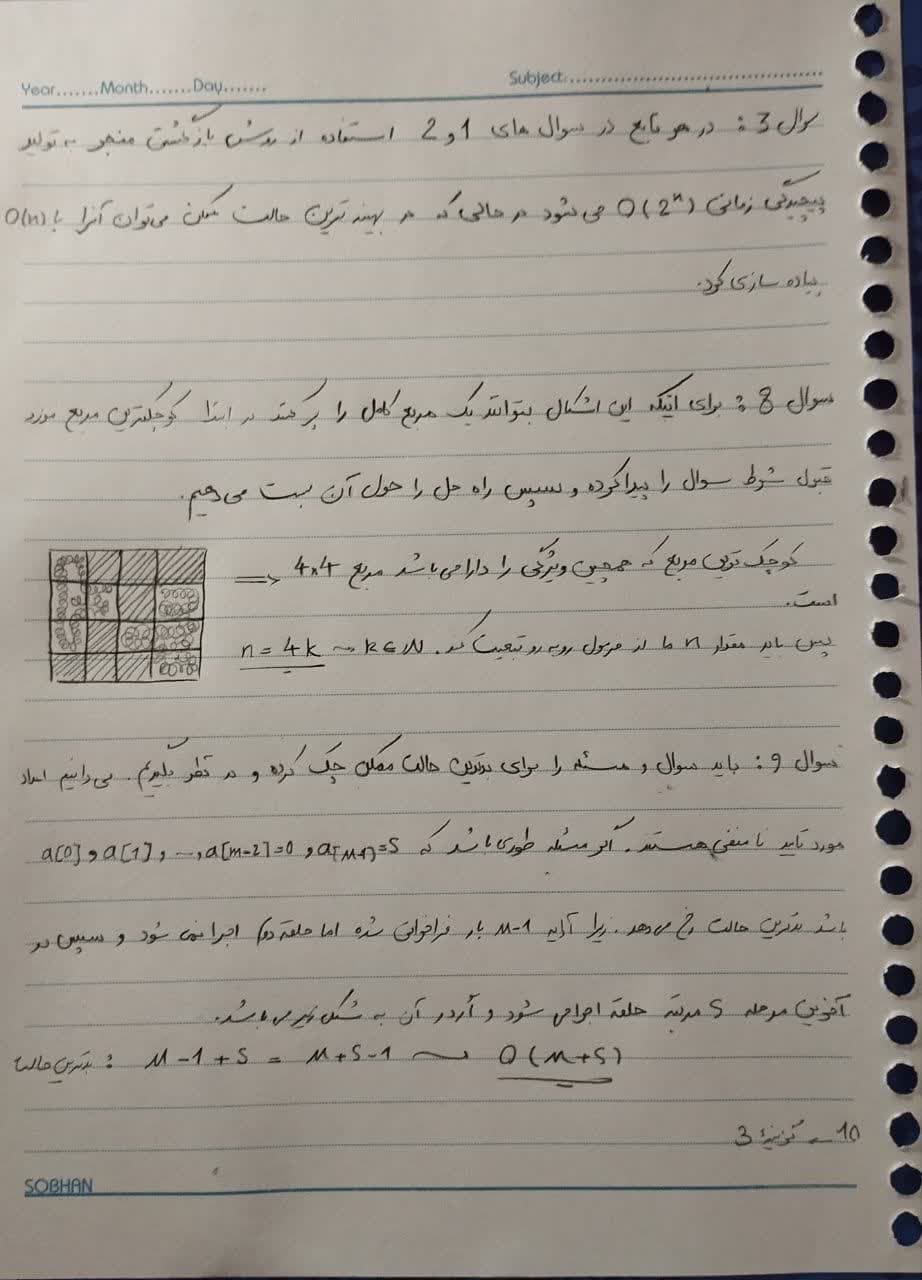 Year.......Month.......Day.......
Subject:
سوال 3 : در هر تابع در سوال های 1 و 2 استفاده از روش بازگشتی منجر به تولید
پیچیدگی زمانی O(2ⁿ) می شود در حالی که در بهینه ترین حالت ممکن می توان آنرا با O(n)
پیاده سازی کرد.
سوال 8 : برای اینکه این اشکال بتوانند یک مربع کامل را پر کنند در ابتدا کوچکترین مربع مورد
قبول شرط سوال را پیدا کرده و سپس راه حل را حول آن بست می دهیم.
کوچک ترین مربع که همچین ویژگی را دارا می باشد مربع 4x4 ⇐
است.
پس باید مقدار n ما از فرمول روبه رو تبعیت کند. n = 4k ~ k ∈ N
سوال 9 : باید سوال و مسئله را برای بدترین حالت ممکن چک کرده و در نظر بگیریم. می دانیم اعداد
مورد تایید نامنفی هستند. اگر مسئله طوری باشد که a[0] و a[1] و ... و a[n-2]=0 و a[n-1]=S
باشد بدترین حالت رخ می دهد. زیرا آرایه n-1 بار فراخوانی شده اما حلقه دوم اجرا نمی شود و سپس در
آخرین مرحله S مرتبه حلقه اجرا می شود و اُردر آن به شکل زیر می باشد.
بدترین حالت : n-1+S = n+S-1 ~ O(n+S)
10 ـ گزینهٔ 3
SOBHAN